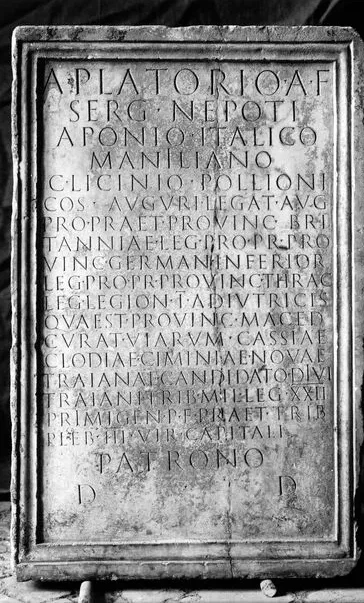 A·PLATORIO·A·F
SERG·NEPOTI
APONIO·ITALICO
MANILIANO
C·LICINIO·POLLIONI
COS·AVGVRI·LEGAT·AVG
PRO·PRAET·PROVINC·BRI
TANNIAE·LEG·PRO·PR·PRO
VINC·GERMAN·INFERIOR
LEG·PRO·PR·PROVINC·THRAC
LEG·LEGION·I·ADIVTRICIS
QVAEST·PROVINC·MACED
CVRAT·VIARVM·CASSIAE
CLODIAE·CIMINIAE·NOVAE
TRAIANAE·CANDIDATO·DIVI
TRAIANI·TRIB·MIL·LEG·XXII
PRIMIGEN·P·F·PRAET·TRIB
PLEB·III·VIR·CAPITALI
PATRONO
D D